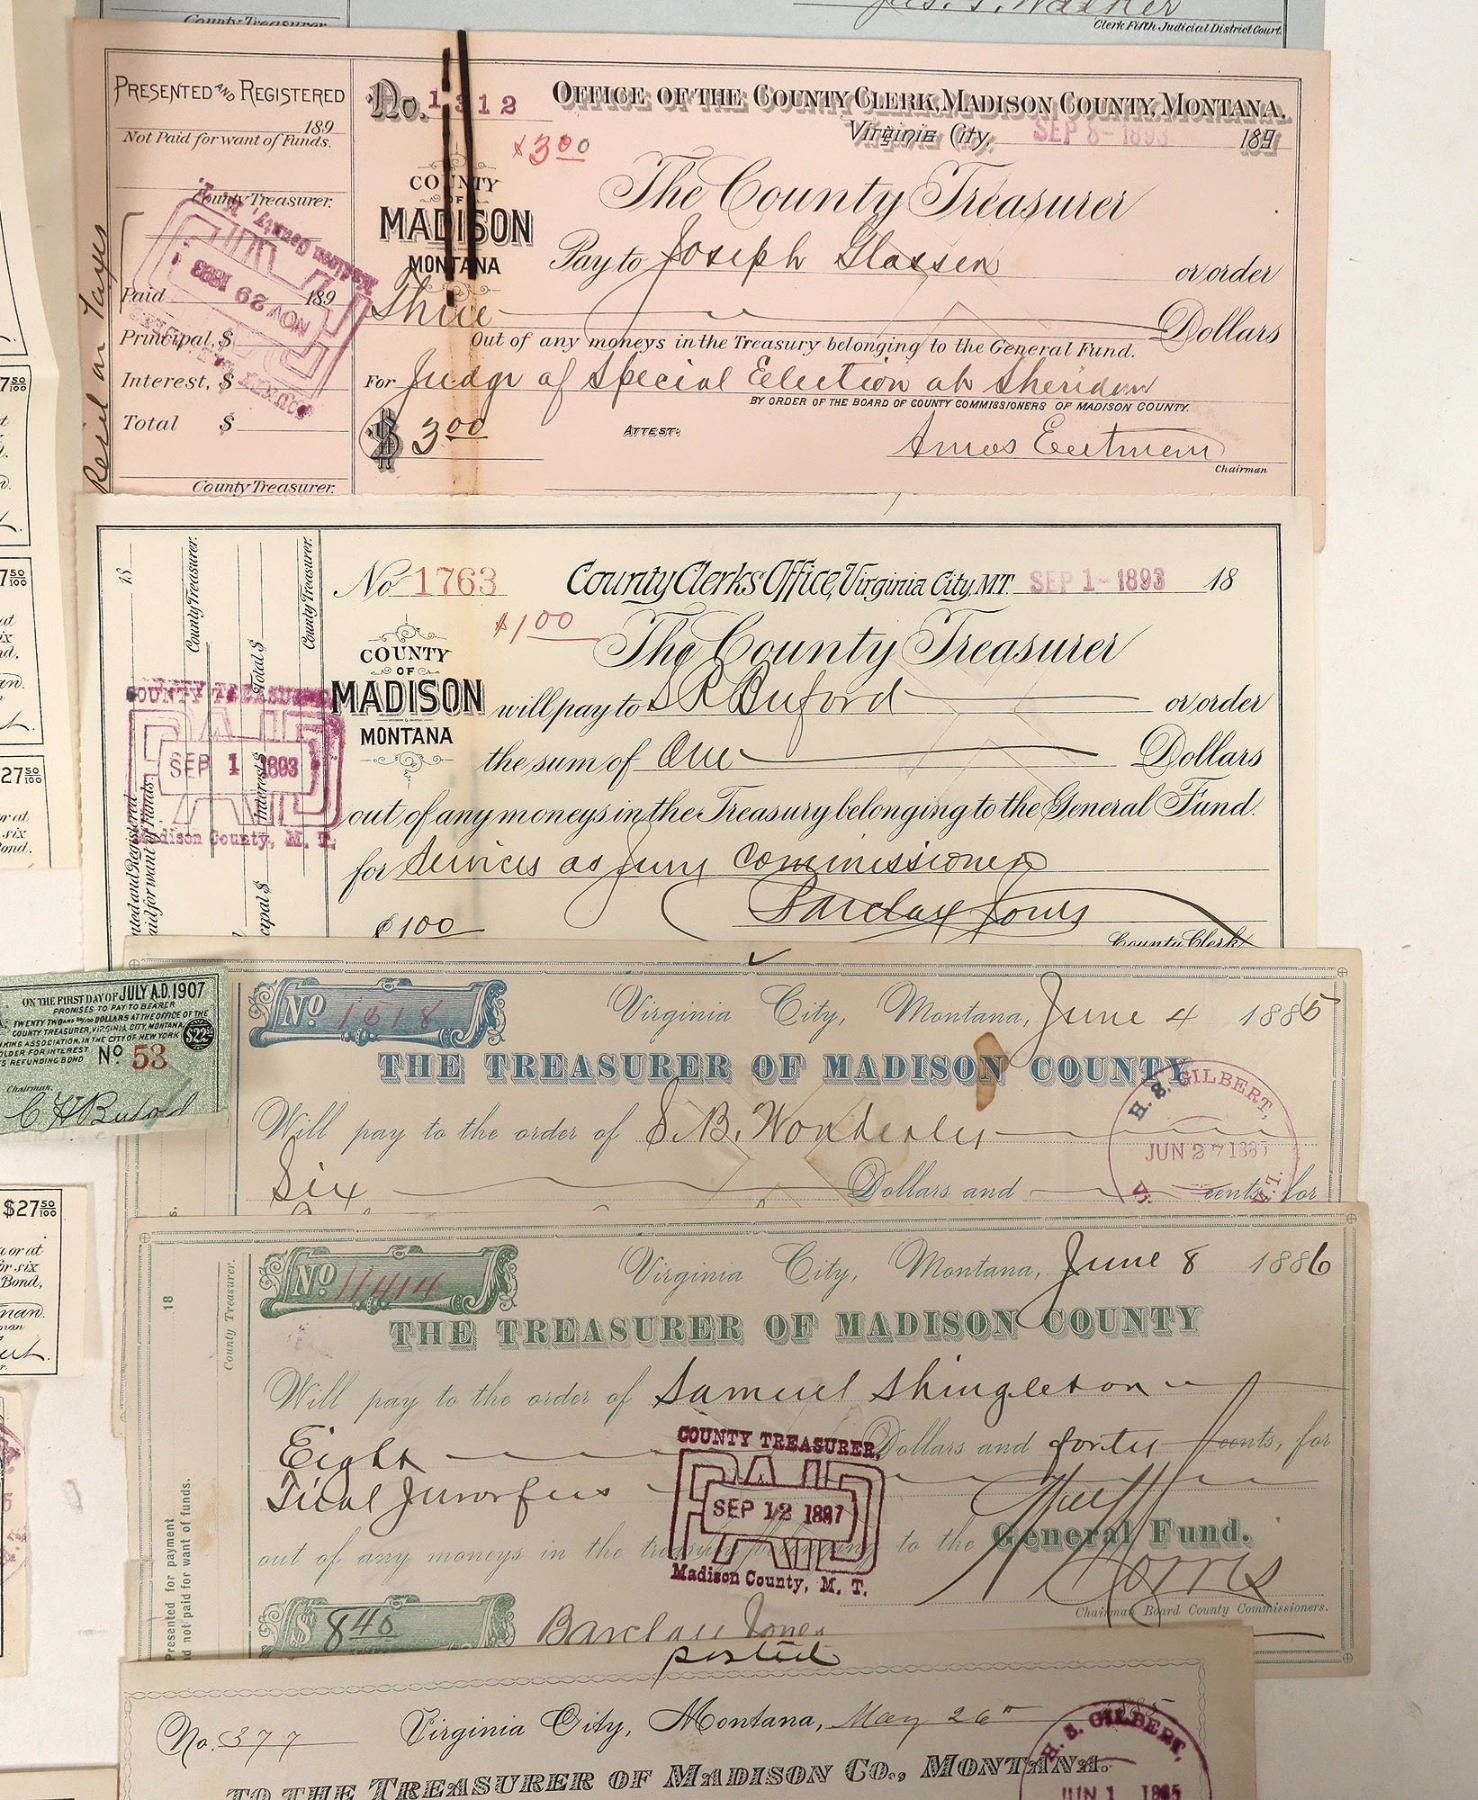 County Treasurer.
Jas. T. Walker
Clerk Fifth Judicial District Court.
PRESENTED AND REGISTERED
189
Not Paid for want of Funds.
County Treasurer.
NOV 29 1893
Paid 189
Principal, $
Interest, $
Total $
County Treasurer.
Recd on Taxes
No. 1312
OFFICE OF THE COUNTY CLERK, MADISON COUNTY, MONTANA.
Virginia City, SEP 8-1893 189
$3.00
COUNTY
OF
MADISON
MONTANA
The County Treasurer
Pay to Joseph Glassen or order
Three Dollars
Out of any moneys in the Treasury belonging to the General Fund.
For Judge of Special Election at Sheridan
BY ORDER OF THE BOARD OF COUNTY COMMISSIONERS OF MADISON COUNTY.
$ 3.00
ATTEST:
Chairman
No 1763
County Clerks Office, Virginia City, MT. SEP 1-1893 18
$1.00
COUNTY
OF
MADISON
MONTANA
The County Treasurer
will pay to S R Buford or order
the sum of One Dollars
out of any moneys in the Treasury belonging to the General Fund.
for Services as Jury Commissioner
$1.00
Barclay Jones
County Clerk
18
County Treasurer.
Total $
County Treasurer.
Interest $
COUNTY TREASURER
PAID
SEP 1 1893
Madison County, M. T.
ON THE FIRST DAY OF JULY A.D. 1907
PROMISES TO PAY TO BEARER
COUNTY TREASURER, VIRGINIA CITY, MONTANA,
IN THE CITY OF NEW YORK
REFUNDING BOND No 53
Chairman.
C H Buford
No 1618
Virginia City, Montana, June 4 1885
THE TREASURER OF MADISON COUNTY
Will pay to the order of S. B. Wonderley
Six Dollars and cents, for
H. S. GILBERT,
JUN 27 1885
No 11414
Virginia City, Montana, June 8 1886
THE TREASURER OF MADISON COUNTY
Will pay to the order of Samuel Shingleton
Eight Dollars and forty cents, for
Trial Juror fees
out of any moneys in the treasury belonging to the General Fund.
COUNTY TREASURER,
PAID
SEP 12 1887
Madison County, M. T.
Morris
Chairman Board County Commissioners.
$ 8 40
Barclay Jones
18
County Treasurer.
Presented for payment
and not paid for want of funds.
posted
No. 377
Virginia City, Montana, May 26th
TO THE TREASURER OF MADISON CO., MONTANA.
H. S. GILBERT,
JUN 1 1885
$27 50/100